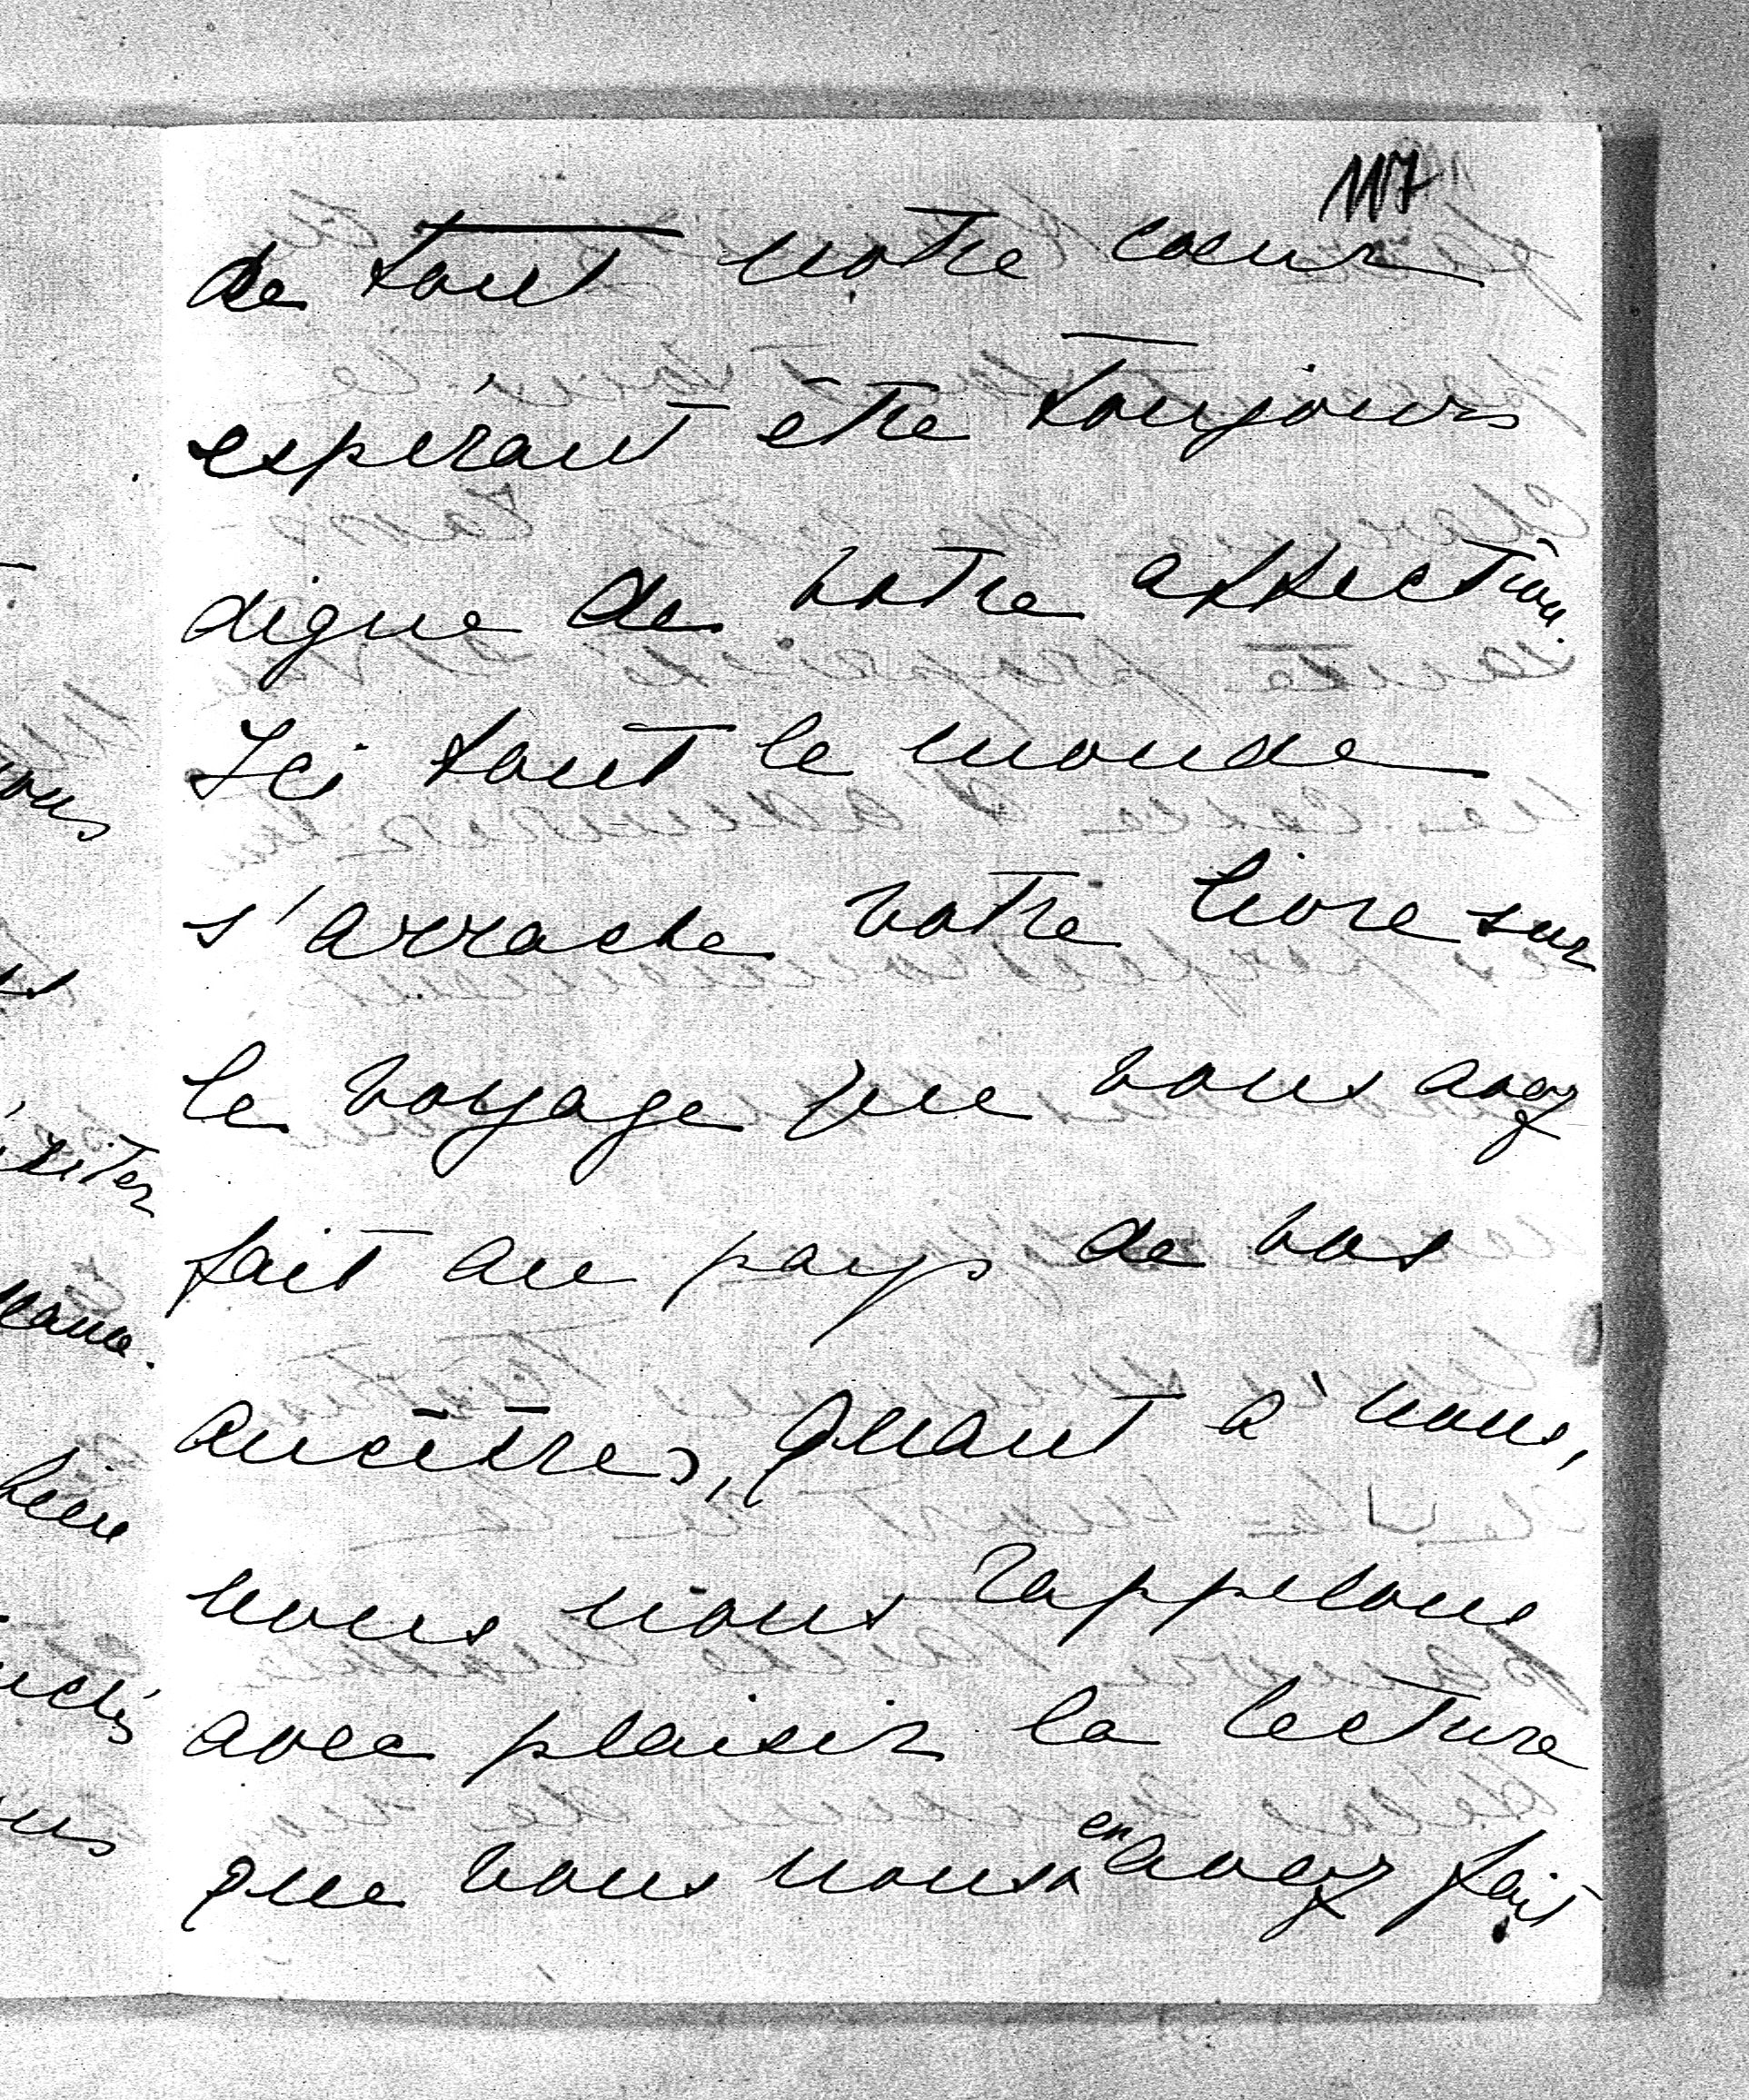 117
de tout notre coeur
espérant être toujours
digne de votre affection.
Ici tout le monde
s'arrache votre livre sur
le voyage que vous avez
fait au pays de vos
ancêtres, Quant à nous,
nous nous rappelons
avec plaisir la lecture
que vous nous en avez fait